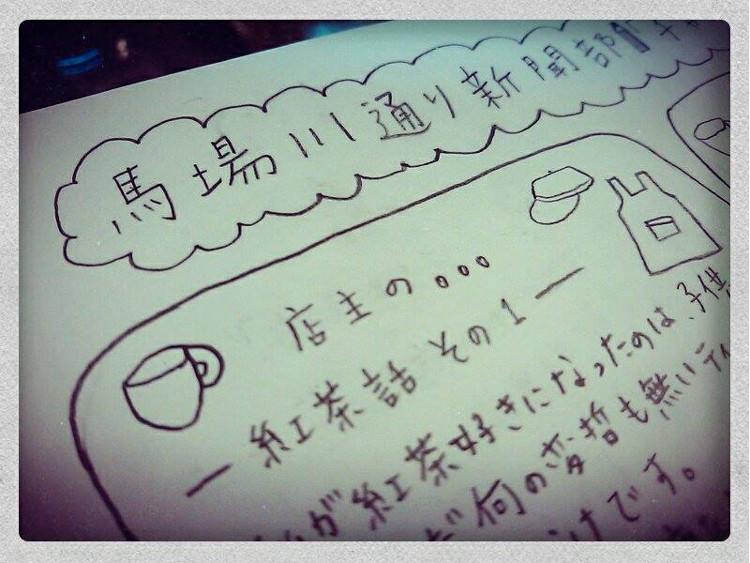 馬場川通り新聞部
店主の。。。
ー紅茶話 その1ー
が紅茶好きになったのは、子供
何の変哲も無いティ
けです。